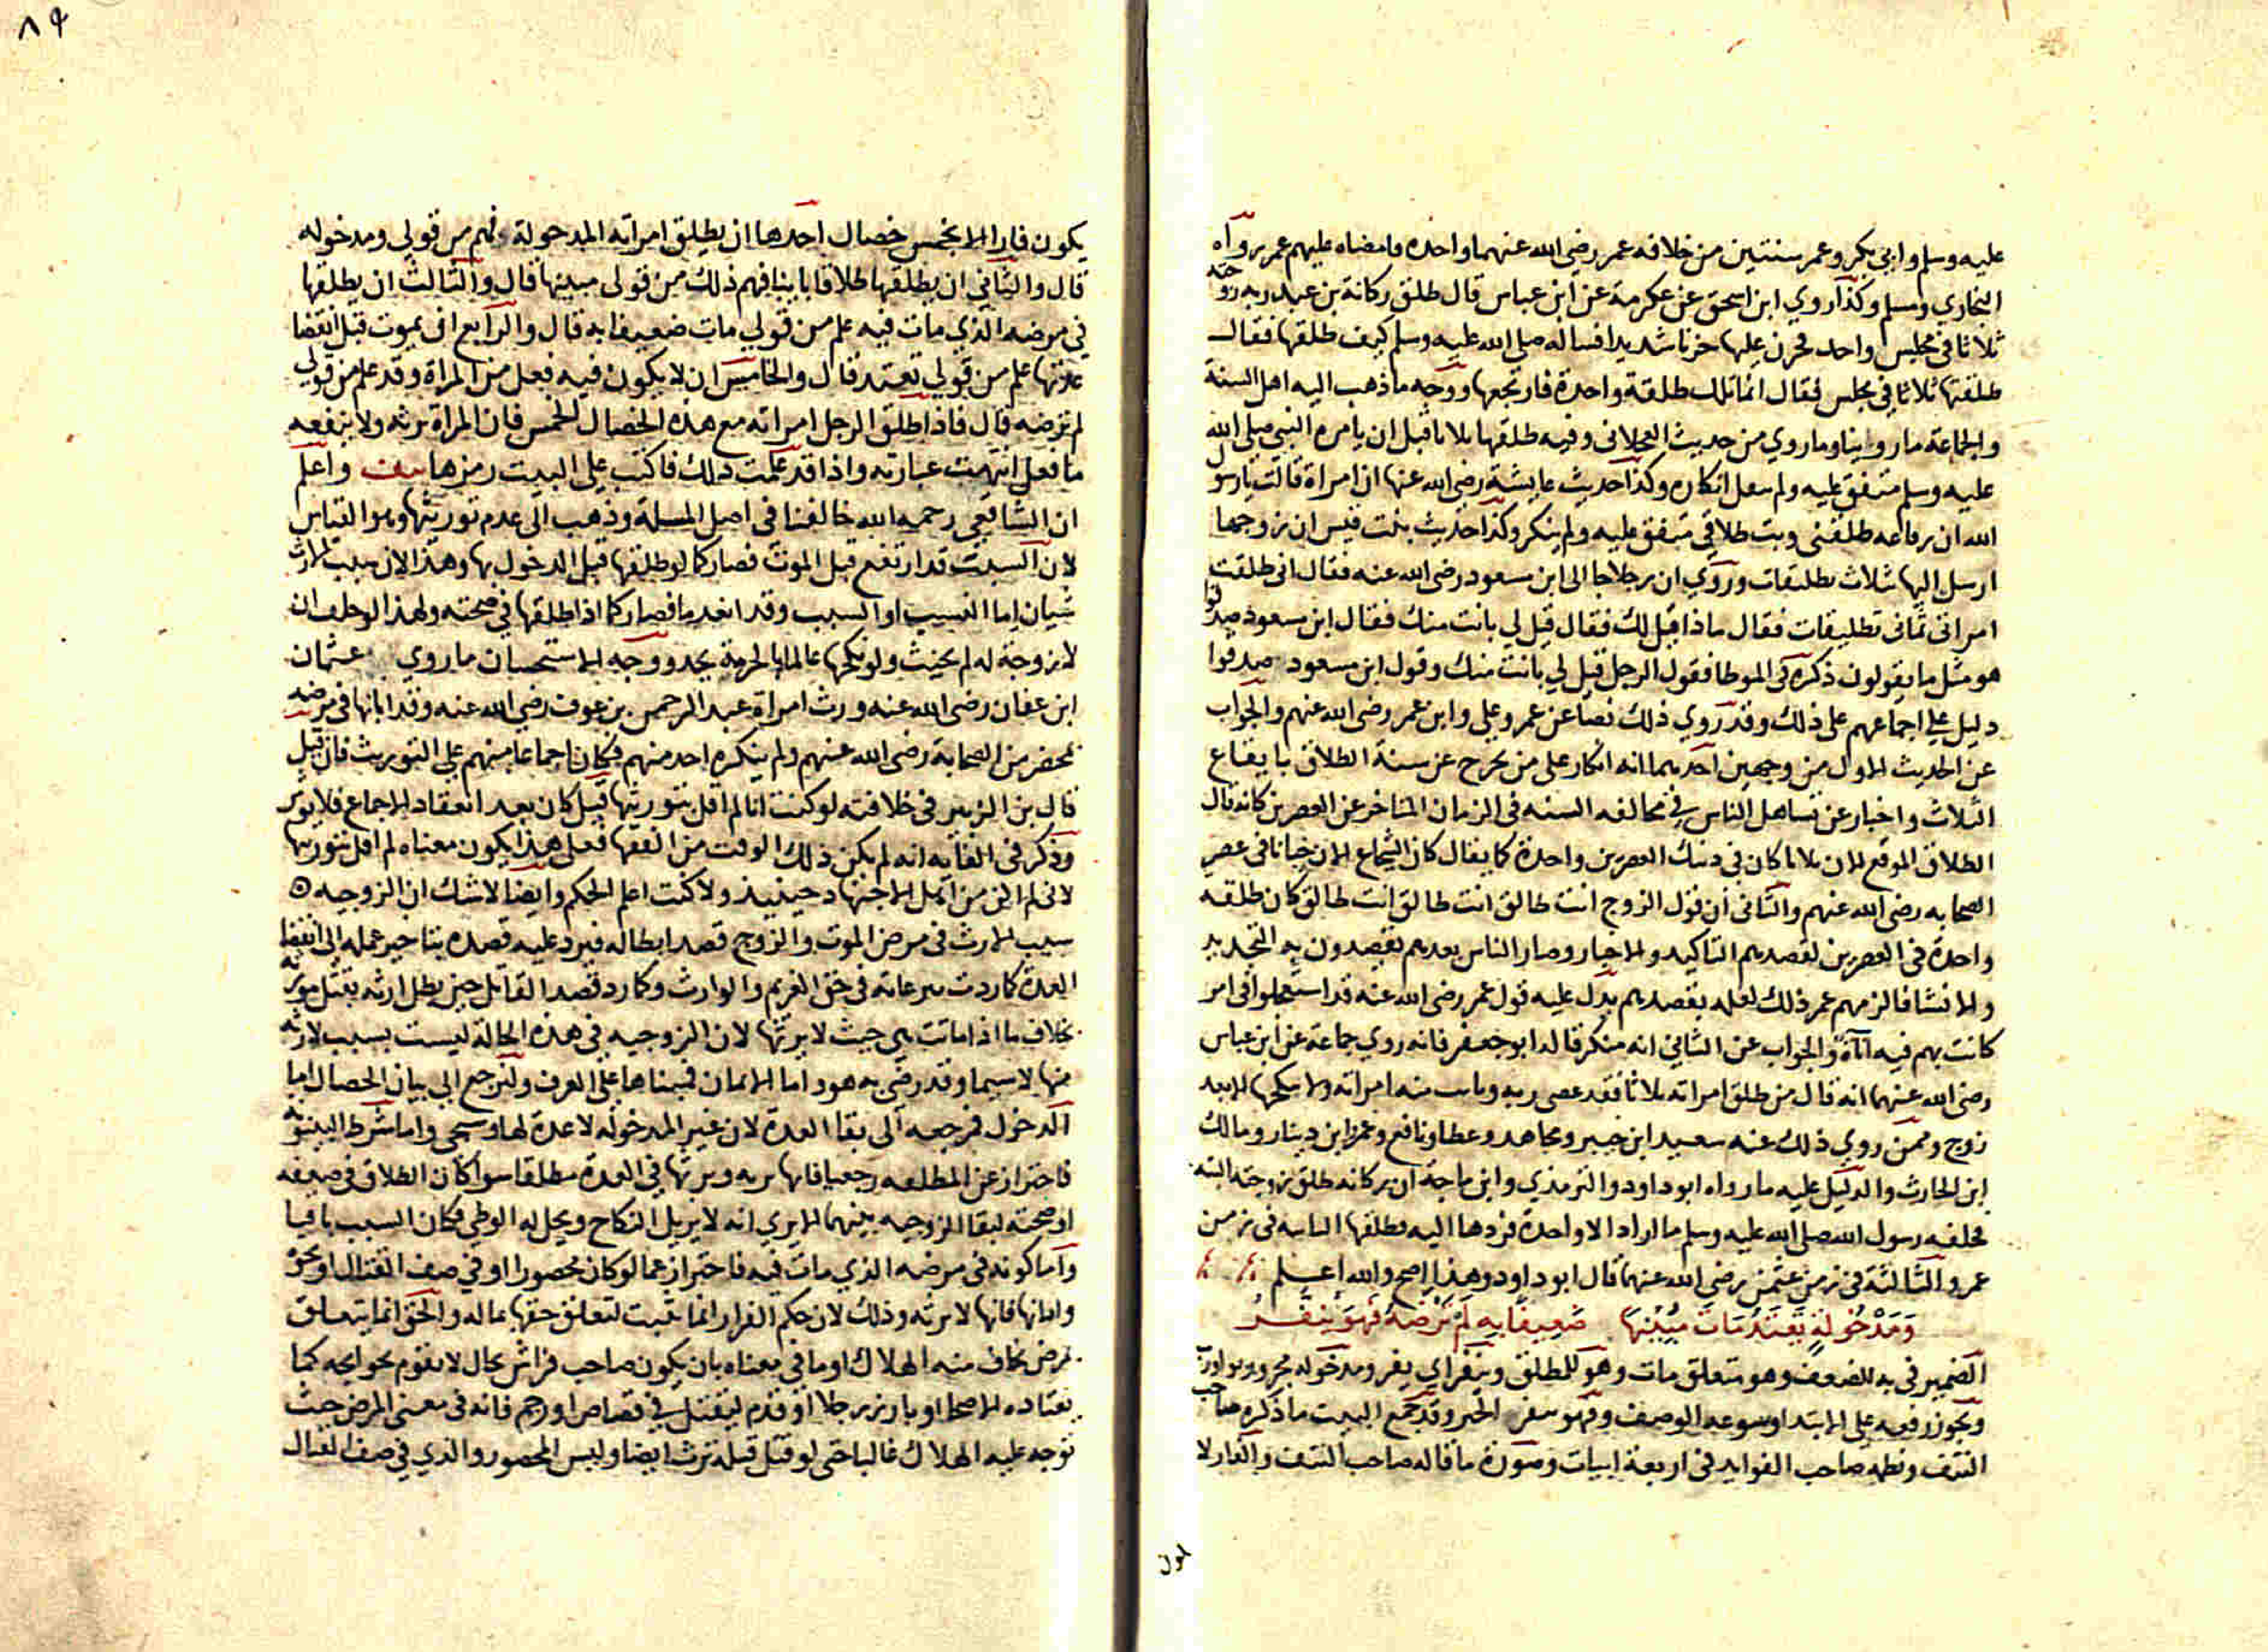 عليه وسلم وابي بكر وعمر سنتين من خلافه عمر رضي الله عنهما واحده فامضاه عليهم عمر رواه
البخاري ومسلم وكذا روي ابن اسحق عن عكرمة عن ابن عباس قال طلق ركانة بن عبد ربه زوجته
ثلاثا في مجليس واحد فحزن عليها حزنا شديدا فساله صلى الله عليه وسلم كيف طلقتها فقال
طلقتها ثلاثا في مجلس فقال انما تلك طلقة واحدة فارتجعها ووجه ما ذهب اليه اهل السنة
والجماعة ما روينا وما روي من حديث العجلاني وفيه طلقها ثلاثا قبل ان يامره النبي صلى الله
عليه وسلم متفق عليه ولم ينقل انكاره وكذا حديث عايشة رضي الله عنها ان امراة قالت يا رسول
الله ان رفاعه طلقني وبت طلاقي متفق عليه ولم ينكر وكذا حديث بنت قيس ان زوجها
ارسل اليها بثلاث تطليقات وروي ان رجلا جا الى ابن مسعود رضي الله عنه فقال اني طلقت
امراتي ثماني تطليقات فقال ماذا قيل لك فقال قيل لي بانت منك فقال ابن مسعود صدقوا
هو مثل ما يقولون ذكره في الموطا فقول الرجل قيل لي بانت منك وقول ابن مسعود صدقوا
دليل على اجماعهم على ذلك وقد روي ذلك نصا عن عمر وعلي وابن عمر رضي الله عنهم والجواب
عن الحديث الاول من وجهين احدهما انه انكار على من يخرج عن سنة الطلاق بايقاع
الثلاث واخبار عن تساهل الناس في مخالفه السنه في الزمان المتاخر عن العصرين كانه قال
الطلاق الموقع الان ثلاثا كان في ذينك العصرين واحدة كما يقال كان الشجاع الان جبانا في عصر
الصحابه رضي الله عنهم والثاني ان قول الزوج انت طالق انت طالق انت طالق كان طلقه
واحدة في العصرين لقصدهم التاكيد والاخبار وصار الناس بعدهم يقصدون به التجديد
والانشا فالزمهم عمر ذلك لعلمه بقصدهم يدل عليه قول عمر رضي الله عنه قد استعجلوا في امر
كانت لهم فيه اناة والجواب عن الثاني انه منكر قاله ابو جعفر فانه روي جماعة عن ابن عباس
رضي الله عنهما انه قال من طلق امراته ثلاثا فقد عصى ربه وبانت منه امراته ولا ينكحها الا بعد
زوج وممن روي ذلك عنه سعيد ابن جبير ومجاهد وعطا ونافع وعمرو ابن دينار ومالك
ابن الحارث والدليل عليه ما رواه ابو داود والترمذي وابن ماجة ان ركانه طلق زوجته البته
فحلفه رسول الله صلى الله عليه وسلم ما اراد الا واحدة فردها اليه فطلقها الثانيه في زمن
عمر والثالثة في زمن عثمن رضي الله عنهما قال ابو داود وهذا اصح والله اعلم
ومدخولة تعتد مات مبينها ضعيفا به لم ترضه فهو ينفر
الضمير في به للضعف وهو متعلق مات وهو للمطلق وينفر اي يفر ومدخوله مجرور بواو رب
ويجوز رفعه على الابتدا وسوغه الوصف وفهو ينفر الخبر وقد جمع البيت ما ذكره صاحب
النتف ونظمه صاحب الفوايد في اربعة ابيات وصورة ما قاله صاحب النتف والفار لا
يكون
يكون فارا الا بخمس خصال احدها ان يطلق امراته المدخولة فهم من قولي ومدخوله
قال والثاني ان يطلقها طلاقا باينا فهم ذلك من قولي مبينها قال والثالث ان يطلقها
في مرضه الذي مات فيه علم من قولي مات ضعيفا به قال والرابع ان يموت قبل انقضا
عدتها علم من قولي تعتد قال والخامس ان لا يكون فيه فعل من المراة وقد علم من قولي
لم ترضه قال فاذا طلق الرجل امراته مع هذه الخصال الخمس فان المراة ترثه ولا ينفعه
ما فعل انتهت عبارته واذا قد علمت ذلك فاكتب على البيت رمزها نتف واعلم
ان الشافعي رحمه الله خالفنا في اصل المسلة وذهب الى عدم توريثها وهو القياس
لان السبب قد ارتفع قبل الموت فصار كما لو طلقها قبل الدخول بها وهذا لان سبب الارث
شيان اما النسيب او السبب وقد انعدما فصار كما اذا طلقها في صحته ولهذا لو حلف ان
لا زوجة له لم يحنث ولو نكحها عالما بالحرمة يحد ووجه الاستحسان ما روي عثمان
ابن عفان رضي الله عنه ورث امراة عبد الرحمن بن عوف رضي الله عنه وقد ابانها في مرضه
بمحضر من الصحابة رضي الله عنهم ولم ينكره احد منهم فكان اجماعا منهم على التوريث فان قيل
قال بن الزبير في خلافته لو كنت انا لم اقل بتوريثها قيل كان بعد انعقاد الاجماع فلا يوثر
وذكر في الغايه انه لم يكن ذلك الوقت من الفقها فعلى هذا يكون معناه لم اقل بتوريثها
لاني لم اكن من اهل الاجتهاد حينيذ ولا كنت اعلم الحكم وايضا لا شك ان الزوجيه
سبب الارث في مرض الموت والزوج قصد ابطاله فيرد عليه قصده بتاخير عمله الى انقضا
العدة كما ردت تبرعاته في حق الغريم والوارث وكما رد قصد القاتل حين بطل ارثه بقتل مورثه
بخلاف ما اذا ماتت هي حيث لا يرثها لان الزوجيه في هذه الحالة ليست بسبب لارثه
منها لا سيما وقد رضي به هود اما الايمان فمبناها على العرف ولنرجع الى بيان الخصال اما
الدخول فمرجعه الى بقا العدة لان غير المدخوله لا عدة لها وسيجي واما شرط البينونه
فاحتراز عن المطلقه رجعيا فانها ترثه ويرثها في العدة مطلقا سوا كان الطلاق في ضعفه
او صحته لبقا الزوجيه بينهما الا يري انه لا يزيل النكاح ويحل له الوطي فكان السبب باقيا
واما كونه في مرضه الذي مات فيه فاحتراز عما لو كان محصورا او في صف القتال او نحوه
وابانها فانها لا ترثه وذلك لان حكم الفرار انما يثبت لتعلق حقها بماله والحق انما يتعلق
بمرض يخاف منه الهلاك او ما في معناه بان يكون صاحب فراش بحال لا يقوم بحوايجه كما
يعتاده الاصحا او بارز رجلا او قدم ليقتل في قصاص او رجم فانه في معنى المرض حيث
توجد عليه الهلاك غالبا حتى لو قتل قبله ترث ايضا وليس المحصور والذي في صف القتال
٨٩